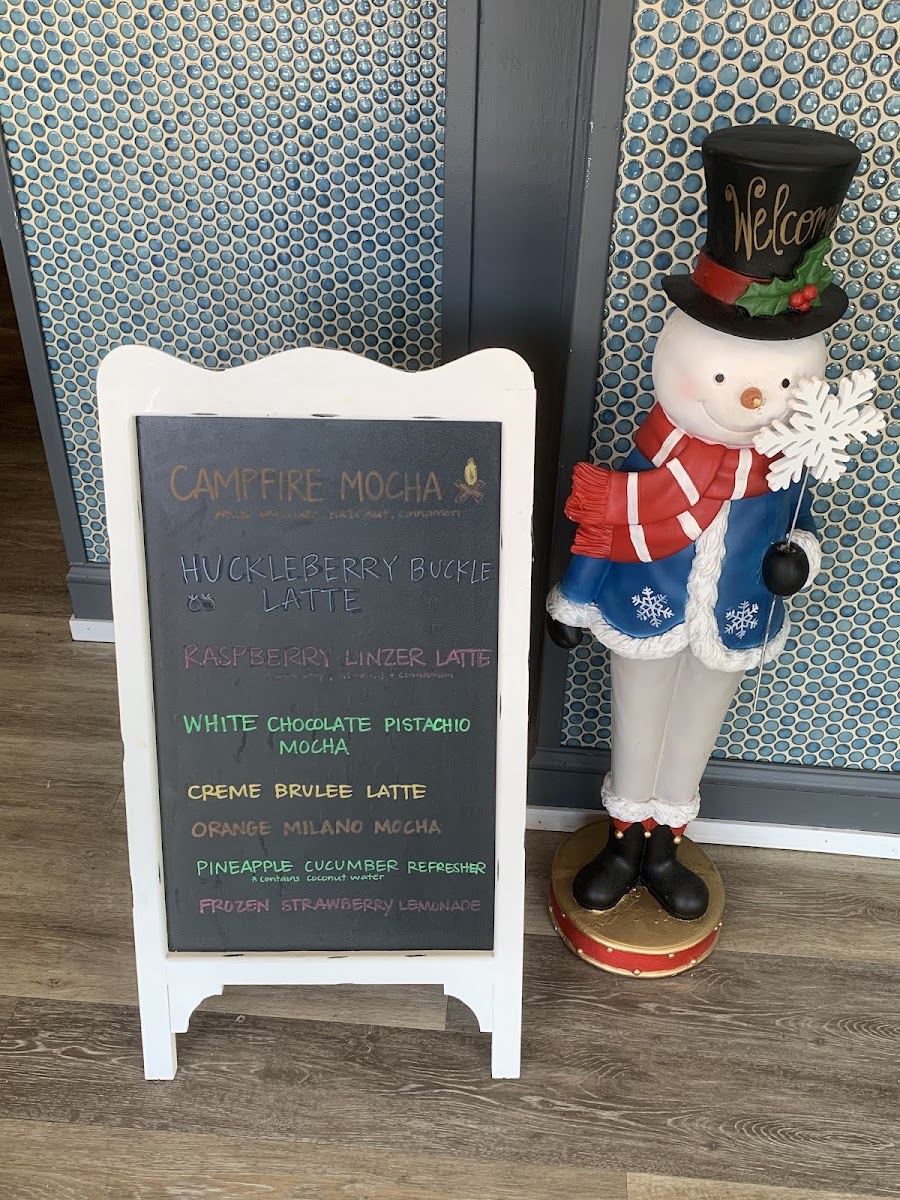 Welcom
CAMPFIRE MOCHA
chocolate, hazelnut, cinnamon
HUCKLEBERRY BUCKLE
LATTE
RASPBERRY LINZER LATTE
+ cinnamon
WHITE CHOCOLATE PISTACHIO
MOCHA
CREME BRULEE LATTE
ORANGE MILANO MOCHA
PINEAPPLE CUCUMBER REFRESHER
* contains coconut water
FROZEN STRAWBERRY LEMONADE